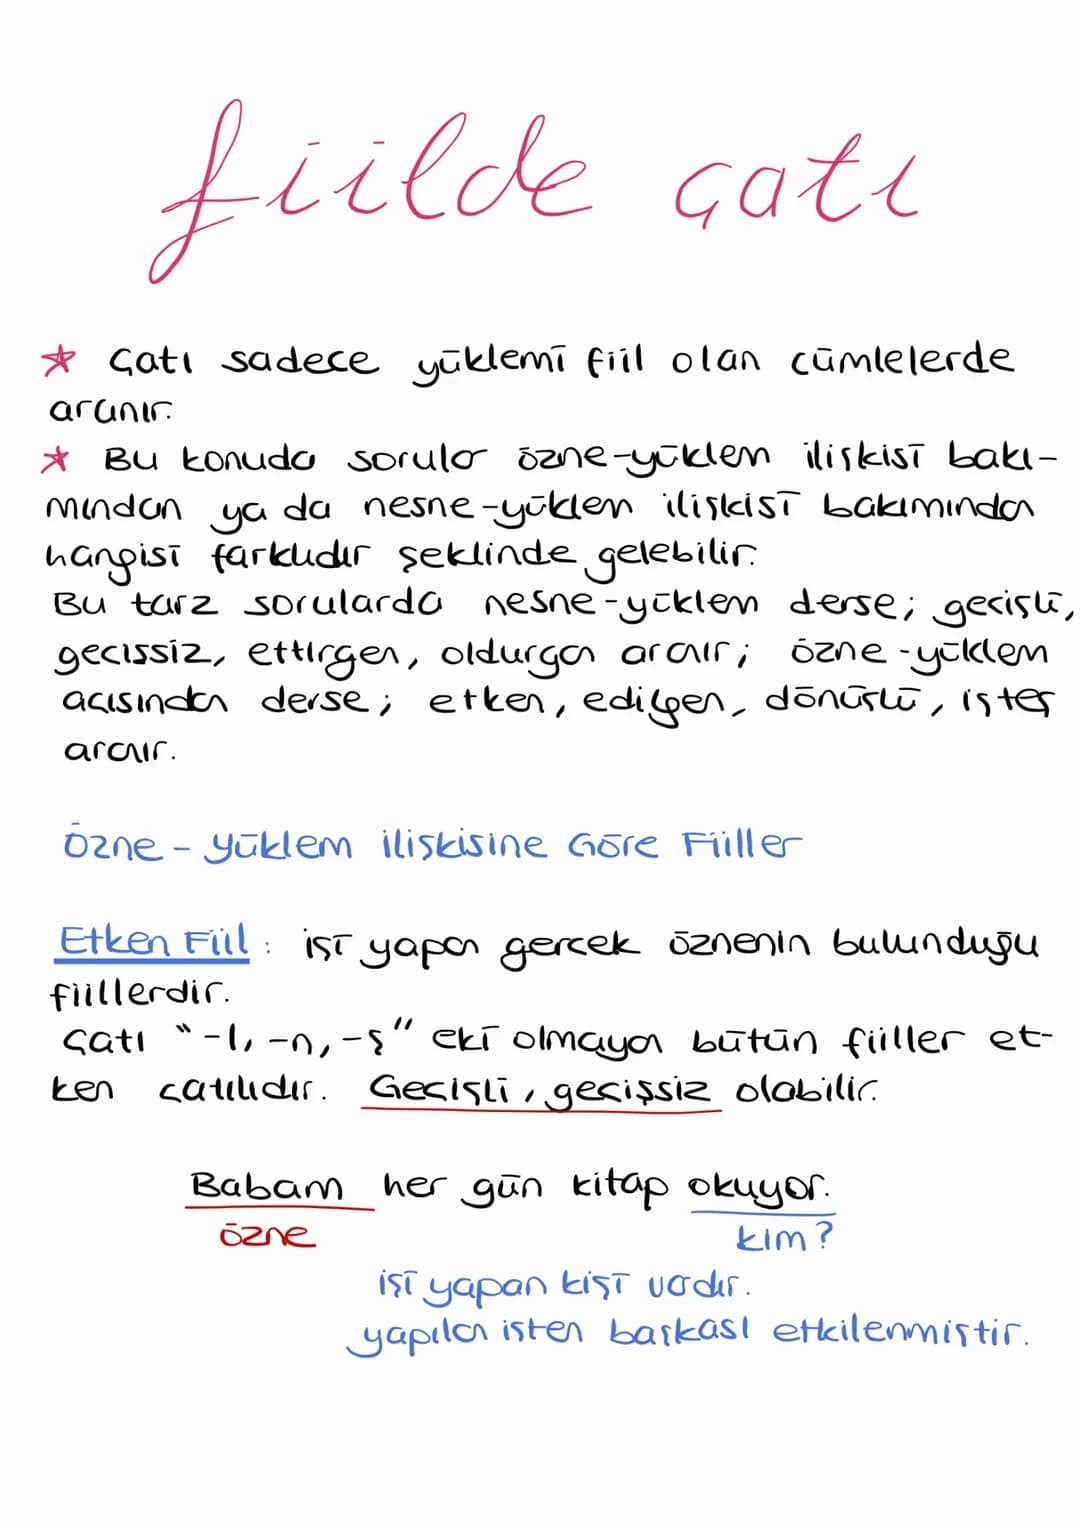 fiilde çatı
* Çatı sadece yüklemi fiil olan cümlelerde
aranır.
* Bu konuda sorular özne-yüklem ilişkisi bakı-
mından ya da nesne-yüklem ilişkisi bakımından
hangisi farklıdır şeklinde gelebilir.
Bu tarz sorularda nesne-yüklem derse; geçişli,
geçişsiz, ettirgen, oldurgan aranır; özne-yüklem
açısından derse; etken, edilgen, dönüşlü, işteş
aranır.
Özne - yüklem ilişkisine Göre Fiiller
Etken Fiil : işi yapan gerçek öznenin bulunduğu
fiillerdir.
Çatı "-l, -n, -ş" eki olmayan bütün fiiller et-
ken çatılıdır. Geçişli, geçişsiz olabilir.
Babam her gün kitap okuyor.
özne kim?
işi yapan kişi vardır.
yapılan işten başkası etkilenmiştir.